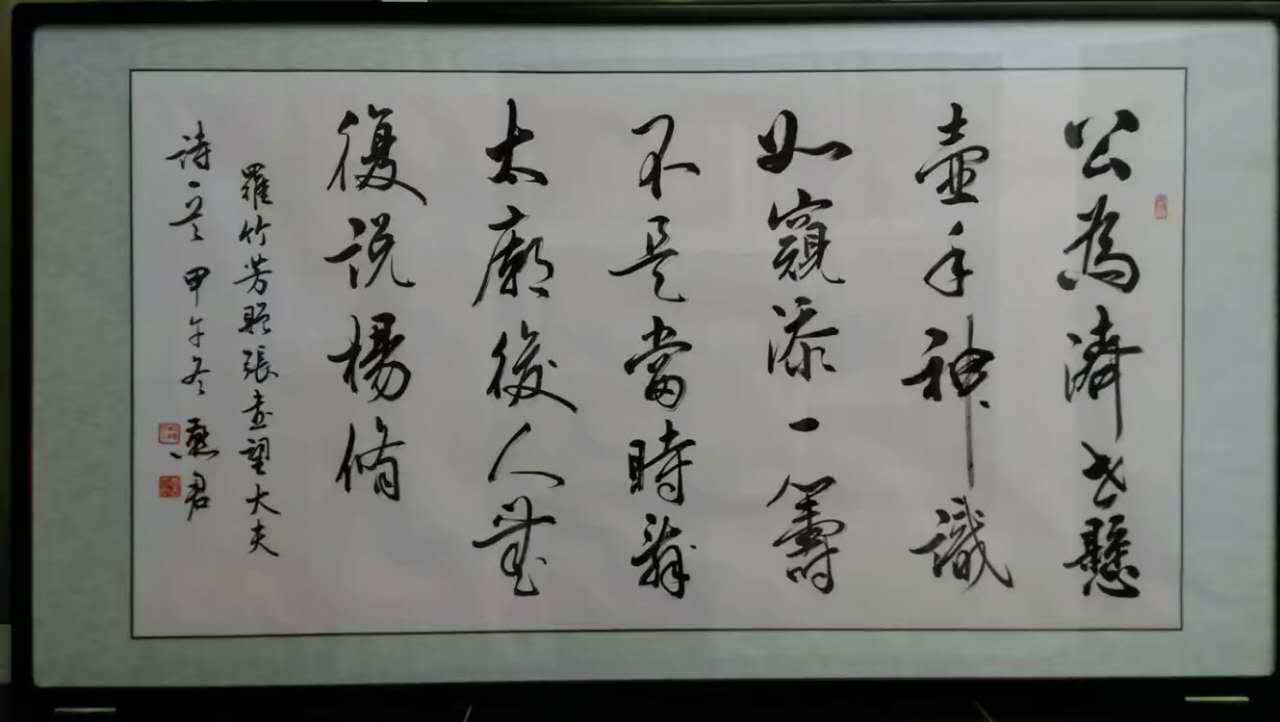 公為濟世懸
壺手神識
如窺添一籌
不是當時辭
太廟後人無
復說楊脩
羅竹芳題張望大夫
詩一首 甲午冬 君